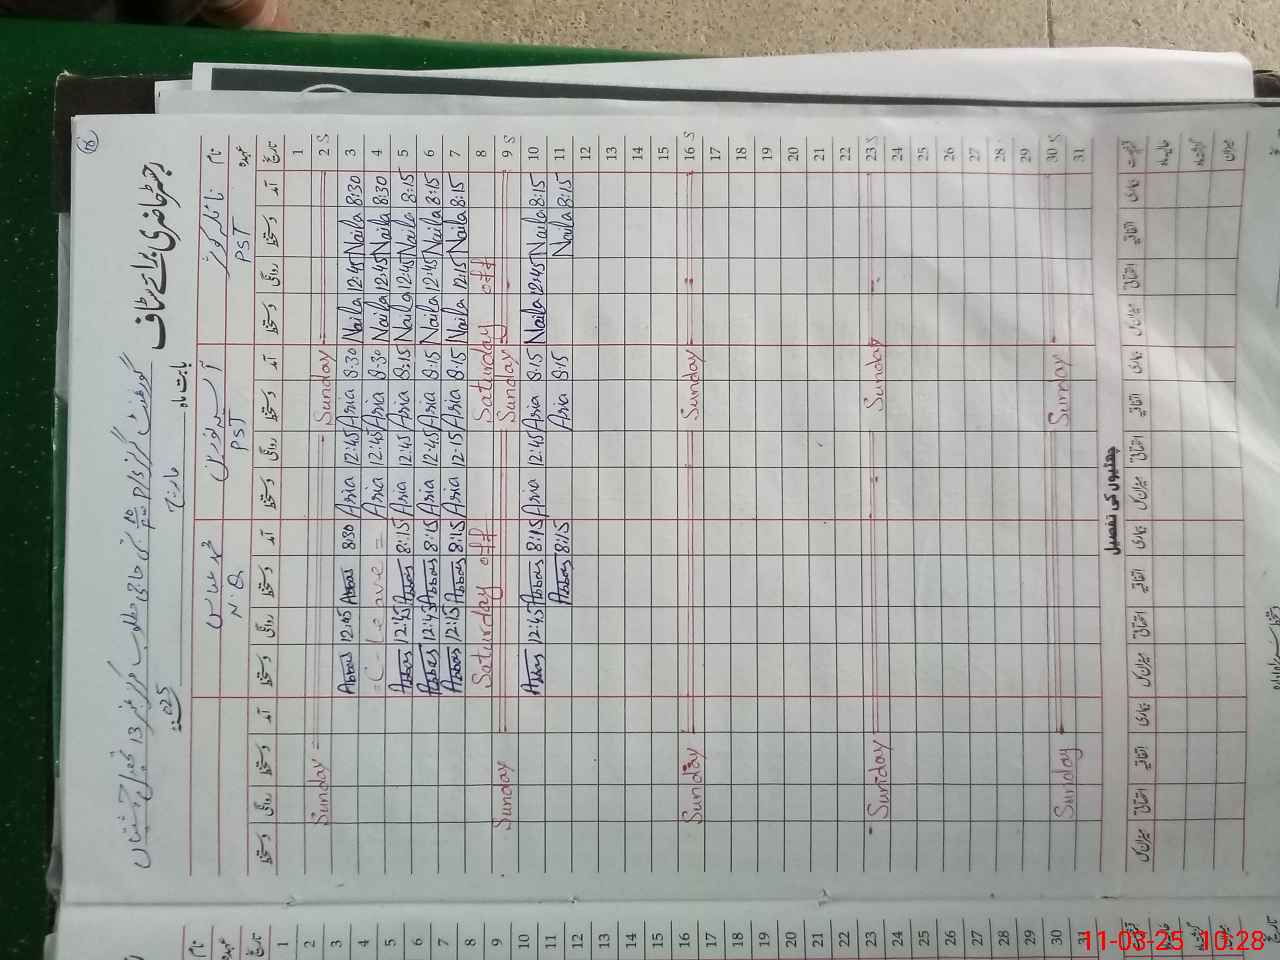 18
رجسٹر حاضری برائے سٹاف
بابت ماہ مارچ 2025
نام
عہدہ PST PST N.Q
تاریخ آمد دستخط روانگی دستخط آمد دستخط روانگی دستخط آمد دستخط روانگی دستخط آمد دستخط روانگی دستخط
1
2 S Sunday Sunday
3 8:30 Naila 12:45 Naila 8:30 Asia 12:45 Asia 8:30 Abbas 12:45 Abbas
4 8:30 Naila 12:45 Naila 8:30 Asia 12:45 Asia = C- Leave =
5 8:15 Naila 12:45 Naila 8:15 Asia 12:45 Asia 8:15 Abbas 12:45 Abbas
6 8:15 Naila 12:45 Naila 8:15 Asia 12:45 Asia 8:15 Abbas 12:45 Abbas
7 8:15 Naila 12:15 Naila 8:15 Asia 12:15 Asia 8:15 Abbas 12:15 Abbas
8 Saturday off Saturday off
9 S Sunday Sunday
10 8:15 Naila 12:45 Naila 8:15 Asia 12:45 Asia 8:15 Abbas 12:45 Abbas
11 8:15 Naila 8:15 Asia 8:15 Abbas
12
13
14
15
16 S Sunday Sunday
17
18
19
20
21
22
23 S Sunday Sunday
24
25
26
27
28
29
30 S Sunday Sunday
31
چھٹیوں کی تفصیل
نام
عہدہ
تاریخ
1
2
3
4
5
6
7
8
9
10
11
12
13
14
15
16
17
18
19
20
21
22
23
24
25
26
27
28
29
30
31
11-03-25 10:28